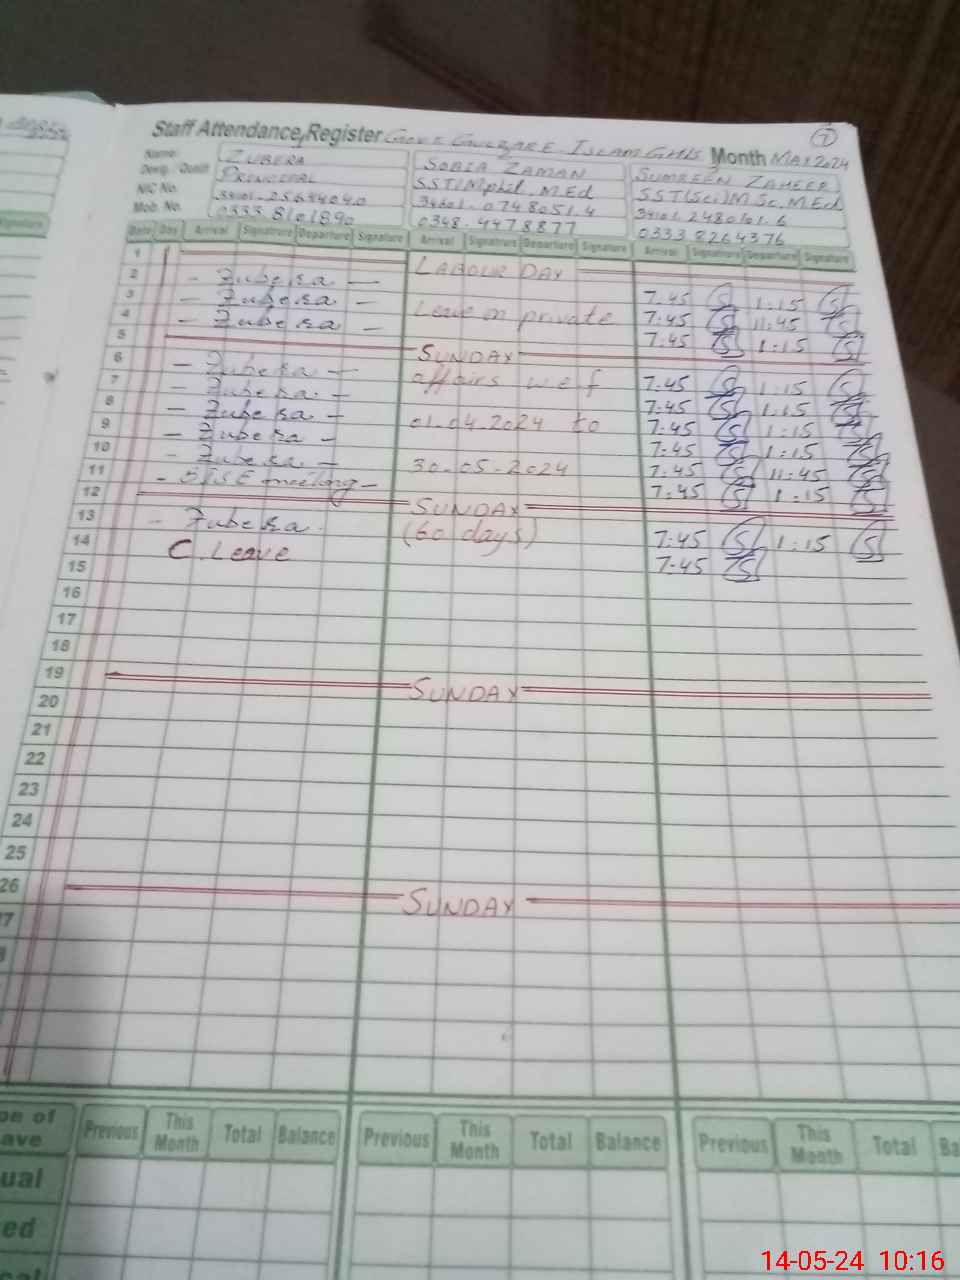 Staff Attendance Register Govt Gulzare Islam GHS Month MAY 2024
7
Name: ZUBERA SOBIA ZAMAN SUMREEN ZAHEER
Desig. / Qualif. PRINCIPAL SST/Mphil, M.Ed SST(Sc.) M.Sc, M.Ed
NIC No.
Mob. No. 0333 8101890 0348.4478877 0333 8264376
Date Day Arrival Signature Departure Signature Arrival Signature Departure Signature Arrival Signature Departure Signature
1 LABOUR DAY
2 - Zubera - 7.45 S 1:15 S
3 - Zubera - Leave on private 7.45 S 11:45 S
4 - Zubera - 7.45 S 1:15 S
5 SUNDAY
6 - Zubera - affairs w.e.f 7.45 S 1:15 S
7 - Zubera - 7.45 S 1:15 S
8 - Zubera - 01.04.2024 to 7.45 S 1:15 S
9 - Zubera - 7.45 S 1:15 S
10 - Zubera - 30.05.2024 7.45 S 11:45 S
11 meeting - 7.45 S 1:15 S
12 SUNDAY
13 - Zubera. (60 days) 7.45 S 1:15 S
14 C. Leave 7.45 S
15
16
17
18
19 SUNDAY
20
21
22
23
24
25
26 SUNDAY
7
Previous This Month Total Balance Previous This Month Total Balance Previous This Month Total Ba
14-05-24 10:16